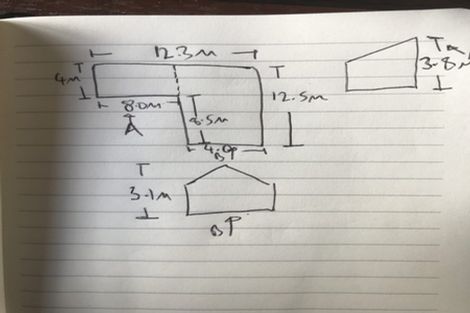 12.3m
4m
3.8m
8.0m
8.5m
12.5m
A
3.1m